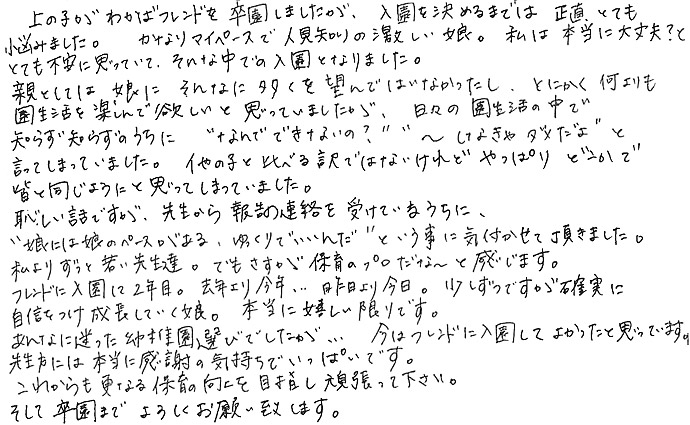 上の子がわかばフレンドを卒園しましたが、入園を決めるまでは正直とても
悩みました。かなりマイペースで人見知りの激しい娘。私は本当に大丈夫?と
とても不安に思っていて、そんな中での入園となりました。
親としては娘にそんなに多くを望んではいなかったし、とにかく何よりも
園生活を楽しんで欲しいと思っていましたが、日々の園生活の中で
知らず知らずのうちに "なんでできないの?" "〜しなきゃダメだよ" と
言ってしまっていました。他の子と比べる訳ではないけれどやっぱりどこかで
皆と同じようにと思ってしまっていました。
恥しい話ですが、先生から報告の連絡を受けているうちに、
"娘には娘のペースがある、ゆっくりでいいんだ" という事に気付かせて頂きました。
私よりずっと若い先生達。でもさすが保育のプロだな〜と感じます。
フレンドに入園して2年目。去年より今年… 昨日より今日。少しずつですが確実に
自信をつけ成長していく娘。本当に嬉しい限りです。
あんなに迷った幼稚園選びでしたが… 今はフレンドに入園してよかったと思っています。
先生方には本当に感謝の気持ちでいっぱいです。
これからも更なる保育の向上を目指し頑張って下さい。
そして卒園までよろしくお願い致します。